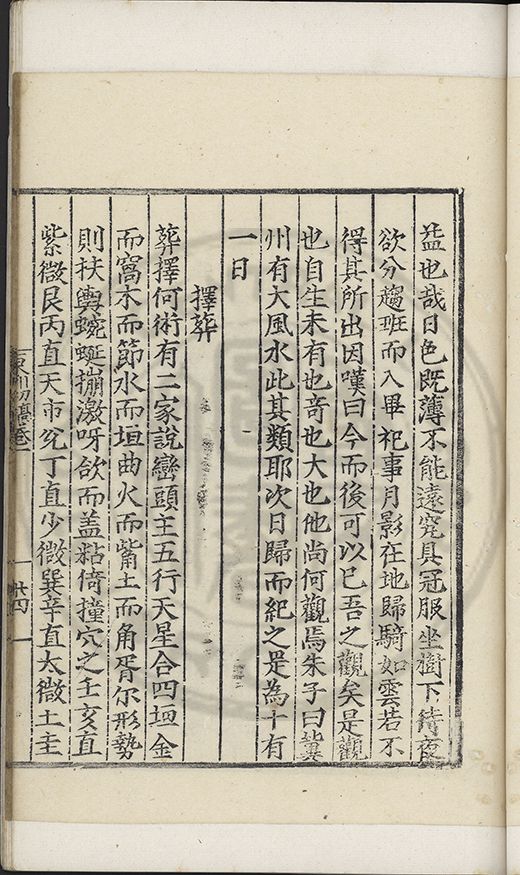 益也哉日色既薄不能遠究具冠服坐樹下待夜
欲分趨班而入畢祀事月影在地歸騎如雲若不
得其所出因嘆曰今而後可以已吾之觀矣是觀
也自生未有也竒也大也他尚何觀焉朱子曰冀
州有大風水此其類耶次日歸而紀之是為十有
一日
擇葬
葬擇何術有二家說巒頭主五行天星合四垣金
而窩木而節水而垣曲火而觜土而角胥尔形勢
則扶輿蜿蜒掤激呀欱而盖粘倚撞穴之壬亥直
紫微艮丙直天市兊丁直少微巽辛直太微土圭
初稿卷一
廿四